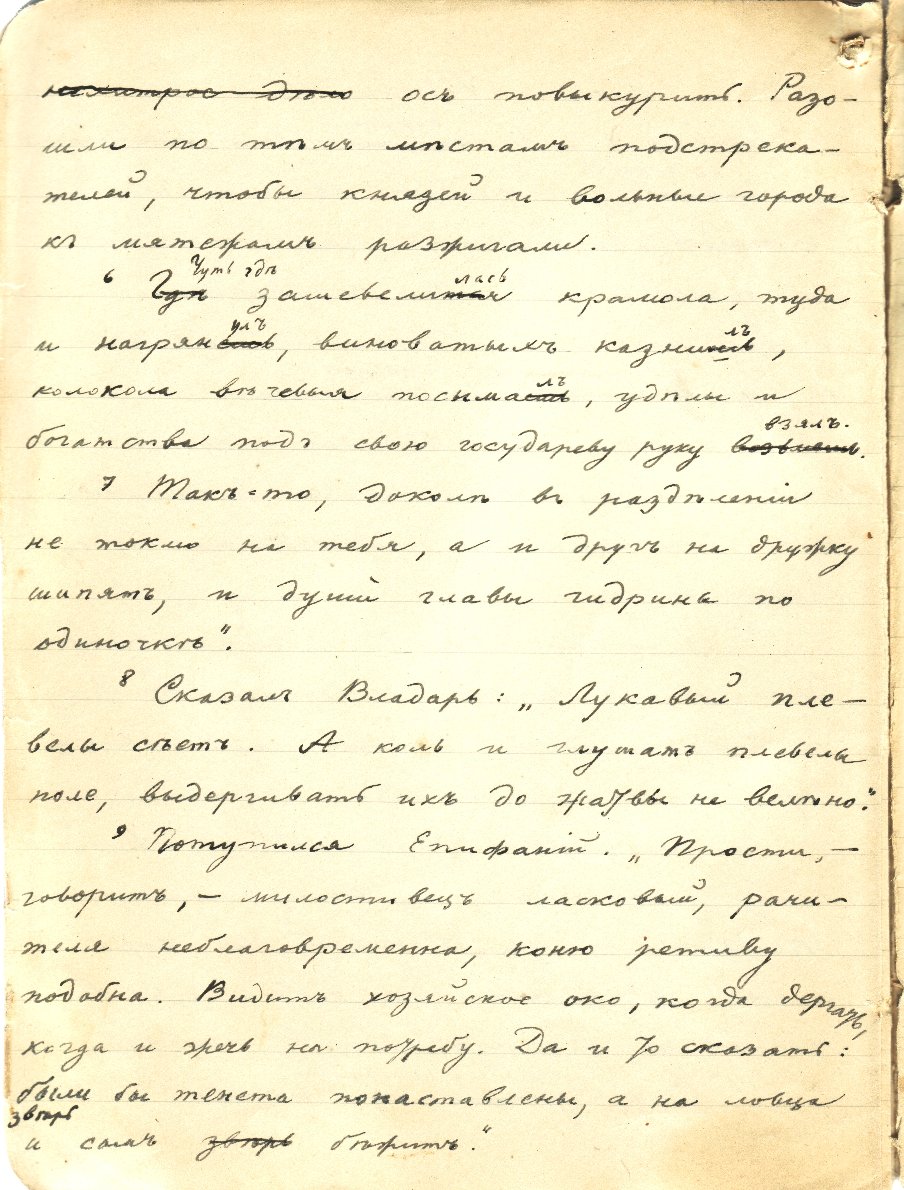 нехитрое дѣло осъ повыкурить. Разо-
шли по тѣмъ мѣстамъ подстрека-
телей, чтобы князей и вольные города
къ мятежамъ разжигали.
Чуть гдѣ лась
6 Гдѣ зашевелится крамола, туда
улъ лъ
и нагрян, виноватымъ казни,
лъ
колокола вѣчевыя посима, удѣлы и
взялъ.
богатства подъ свою государеву руку возьмешь.
7 Такъ-то, доколѣ въ раздѣленіи
не токмо на тебя, а и другъ на дружку
шипятъ, и души главы гидрины по
одиночкѣ“.
8 Сказалъ Владарь: „Лукавый пле-
велы сѣетъ. А коль и глушатъ плевелы
поле, выдергивать ихъ до жатвы не велѣно“.
9 Потупился Епифаній. „Прости, –
говоритъ, – милостивецъ ласковый, рачи-
теля неблаговременна, коню ретиву
подобна. Видитъ хозяйское око, когда дергать,
когда и жечь на потребу. Да и то сказать:
были бы тенета понаставлены, а на ловца
звѣрь
и самъ звѣрь бѣжитъ.“